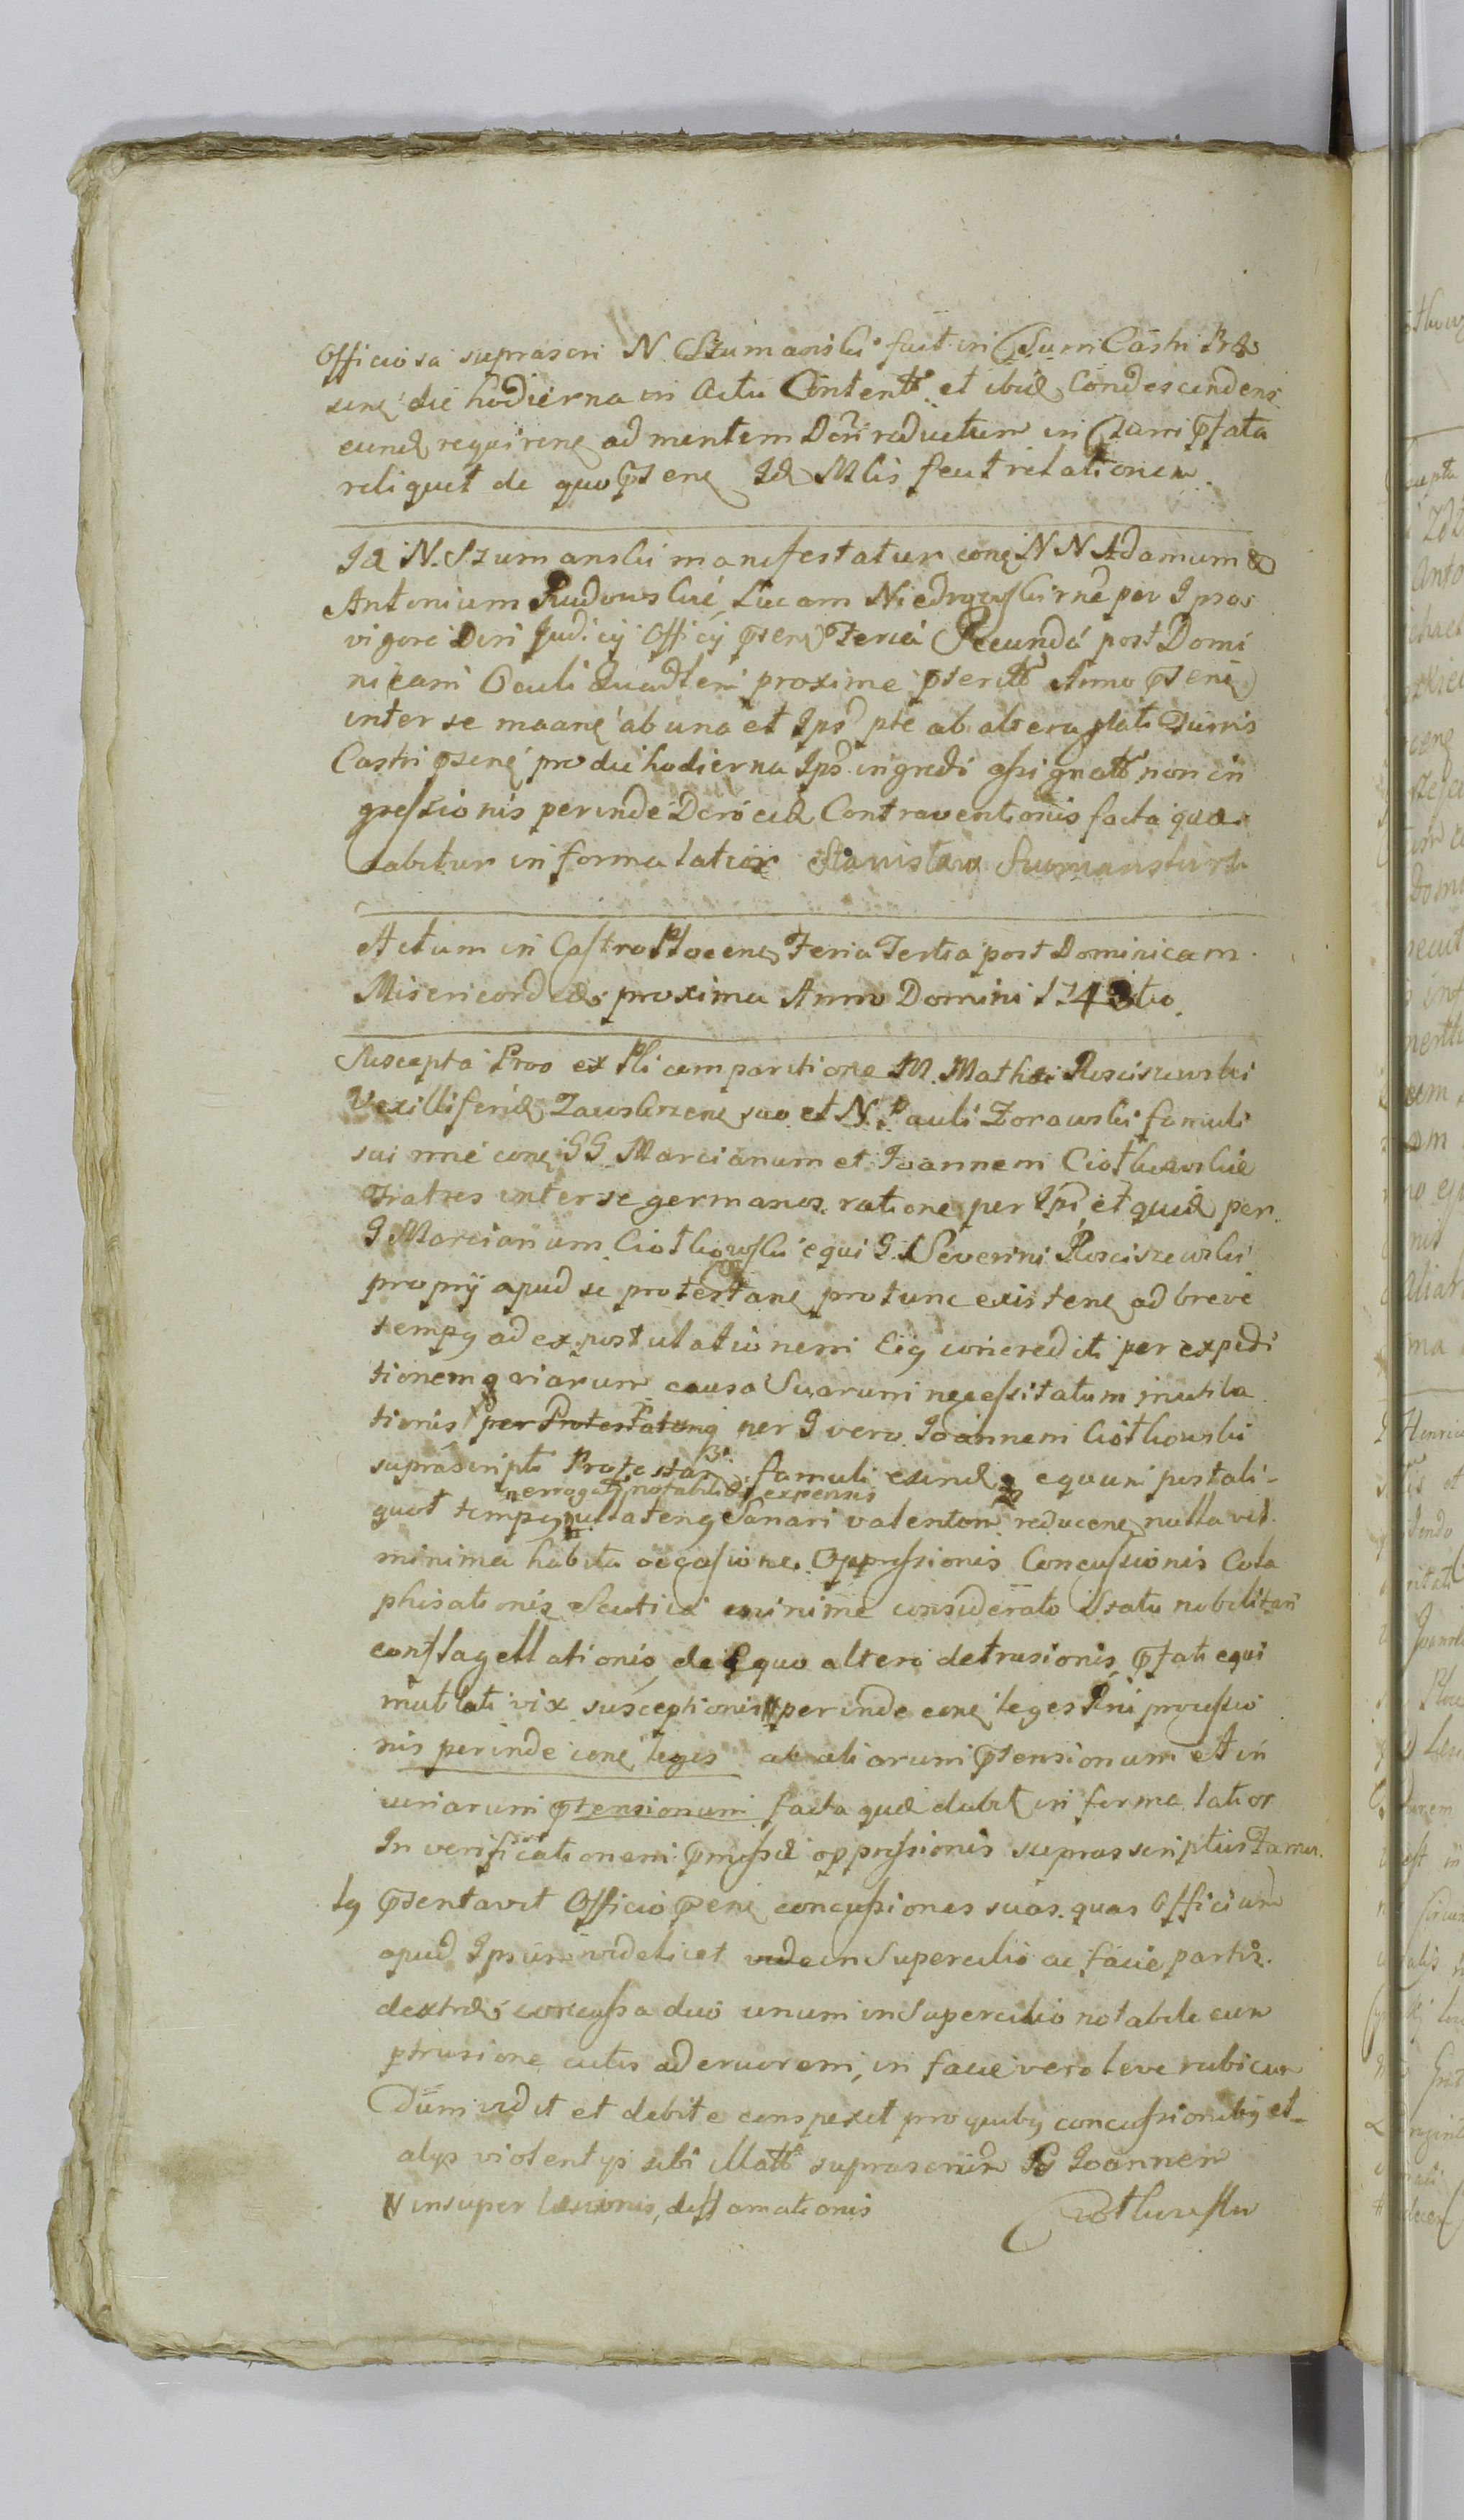 Officiosa suprascri N. Szumanski facit in Turri Castri Prae
sens die hodierna in Actu Content et ibid Condescendens
eund requirens ad mentem Dcri reductum in Turri pfata
reliquit de quo psens Id Mlis fecit relationem.
Id N. Szumanski manifestatur con N N Adamum &
Antonium Rudowskie, Lucam Niedrozoski rne per Ipsos
vigore Dcri Judicij Officij psen Feria Secunda post Domi
nicam Oculi Quadleni proxime pterit Anno psen
inter se maane ab una et Ips pte ab altera plati Turris
Castri psen pro die hodierna Ips ingredi assignatt non in
gressionis perinde Dcro eid Contraventionis facta qua
dabitur in forma latior Stanislaw Szumanski
Actum in Castro Plocen Feria Tertia post Dominicam
Misericordiae proxima Anno Domini 1743tio.
Suscepta Pros ex Pli comparitione M. Mathei Rosciszewski
Vexilliferid Zawskrzen suo et N. Pauli Zorawski famuli
sui nne con GG Marcianum et Joannem Ciotkowskie
Fratres inter se germanos ratione per Ips et quid per
G Marcianum Ciotkowski equi G. Severini Rosciszewski
proprij apud se protestan protunc existen ad breve
tempg ad expostulationem Eig concrediti per expedi
tionemq viarum causa Suarum necessitatum mutila
tionis per Protestatung per G vero Joannem Ciotkowski
suprascripti Protestan famuli exind equum post ali-
errogatis notabilibus expensis
quot tempg nullateng Sanari valentem reducen nulla vel
minima habita occasione Oppressionis Concussionis Cola
phisationis Scutica minime considerato Statu nobilitari
conflagellationis de Equo altero detrusionis pfati equi
mutilati vix susceptionis perinde con leges Rni processio
nis perinde con leges ac aliarum ptensionum et in
uriarum ptensionum facta quae dabit in forma latior
In verificationem pmissae oppressionis suprasscriptus Famu-
lg psentavit Officio psen concussiones suas quas Officium
apud Ipsum videlicet vide in Supercilio ac facie partis
dextrae concussa duo unum in Supercilio notabile cum
ptrusione cutis ad cruorem, in facie vero leve rubicun
Dum vidit et debite conspexit pro quibg concussionibg et
alys violentys sibi illatt suprascrium G Joannem
N insuper laesionis, diffamationis Ciotkowski